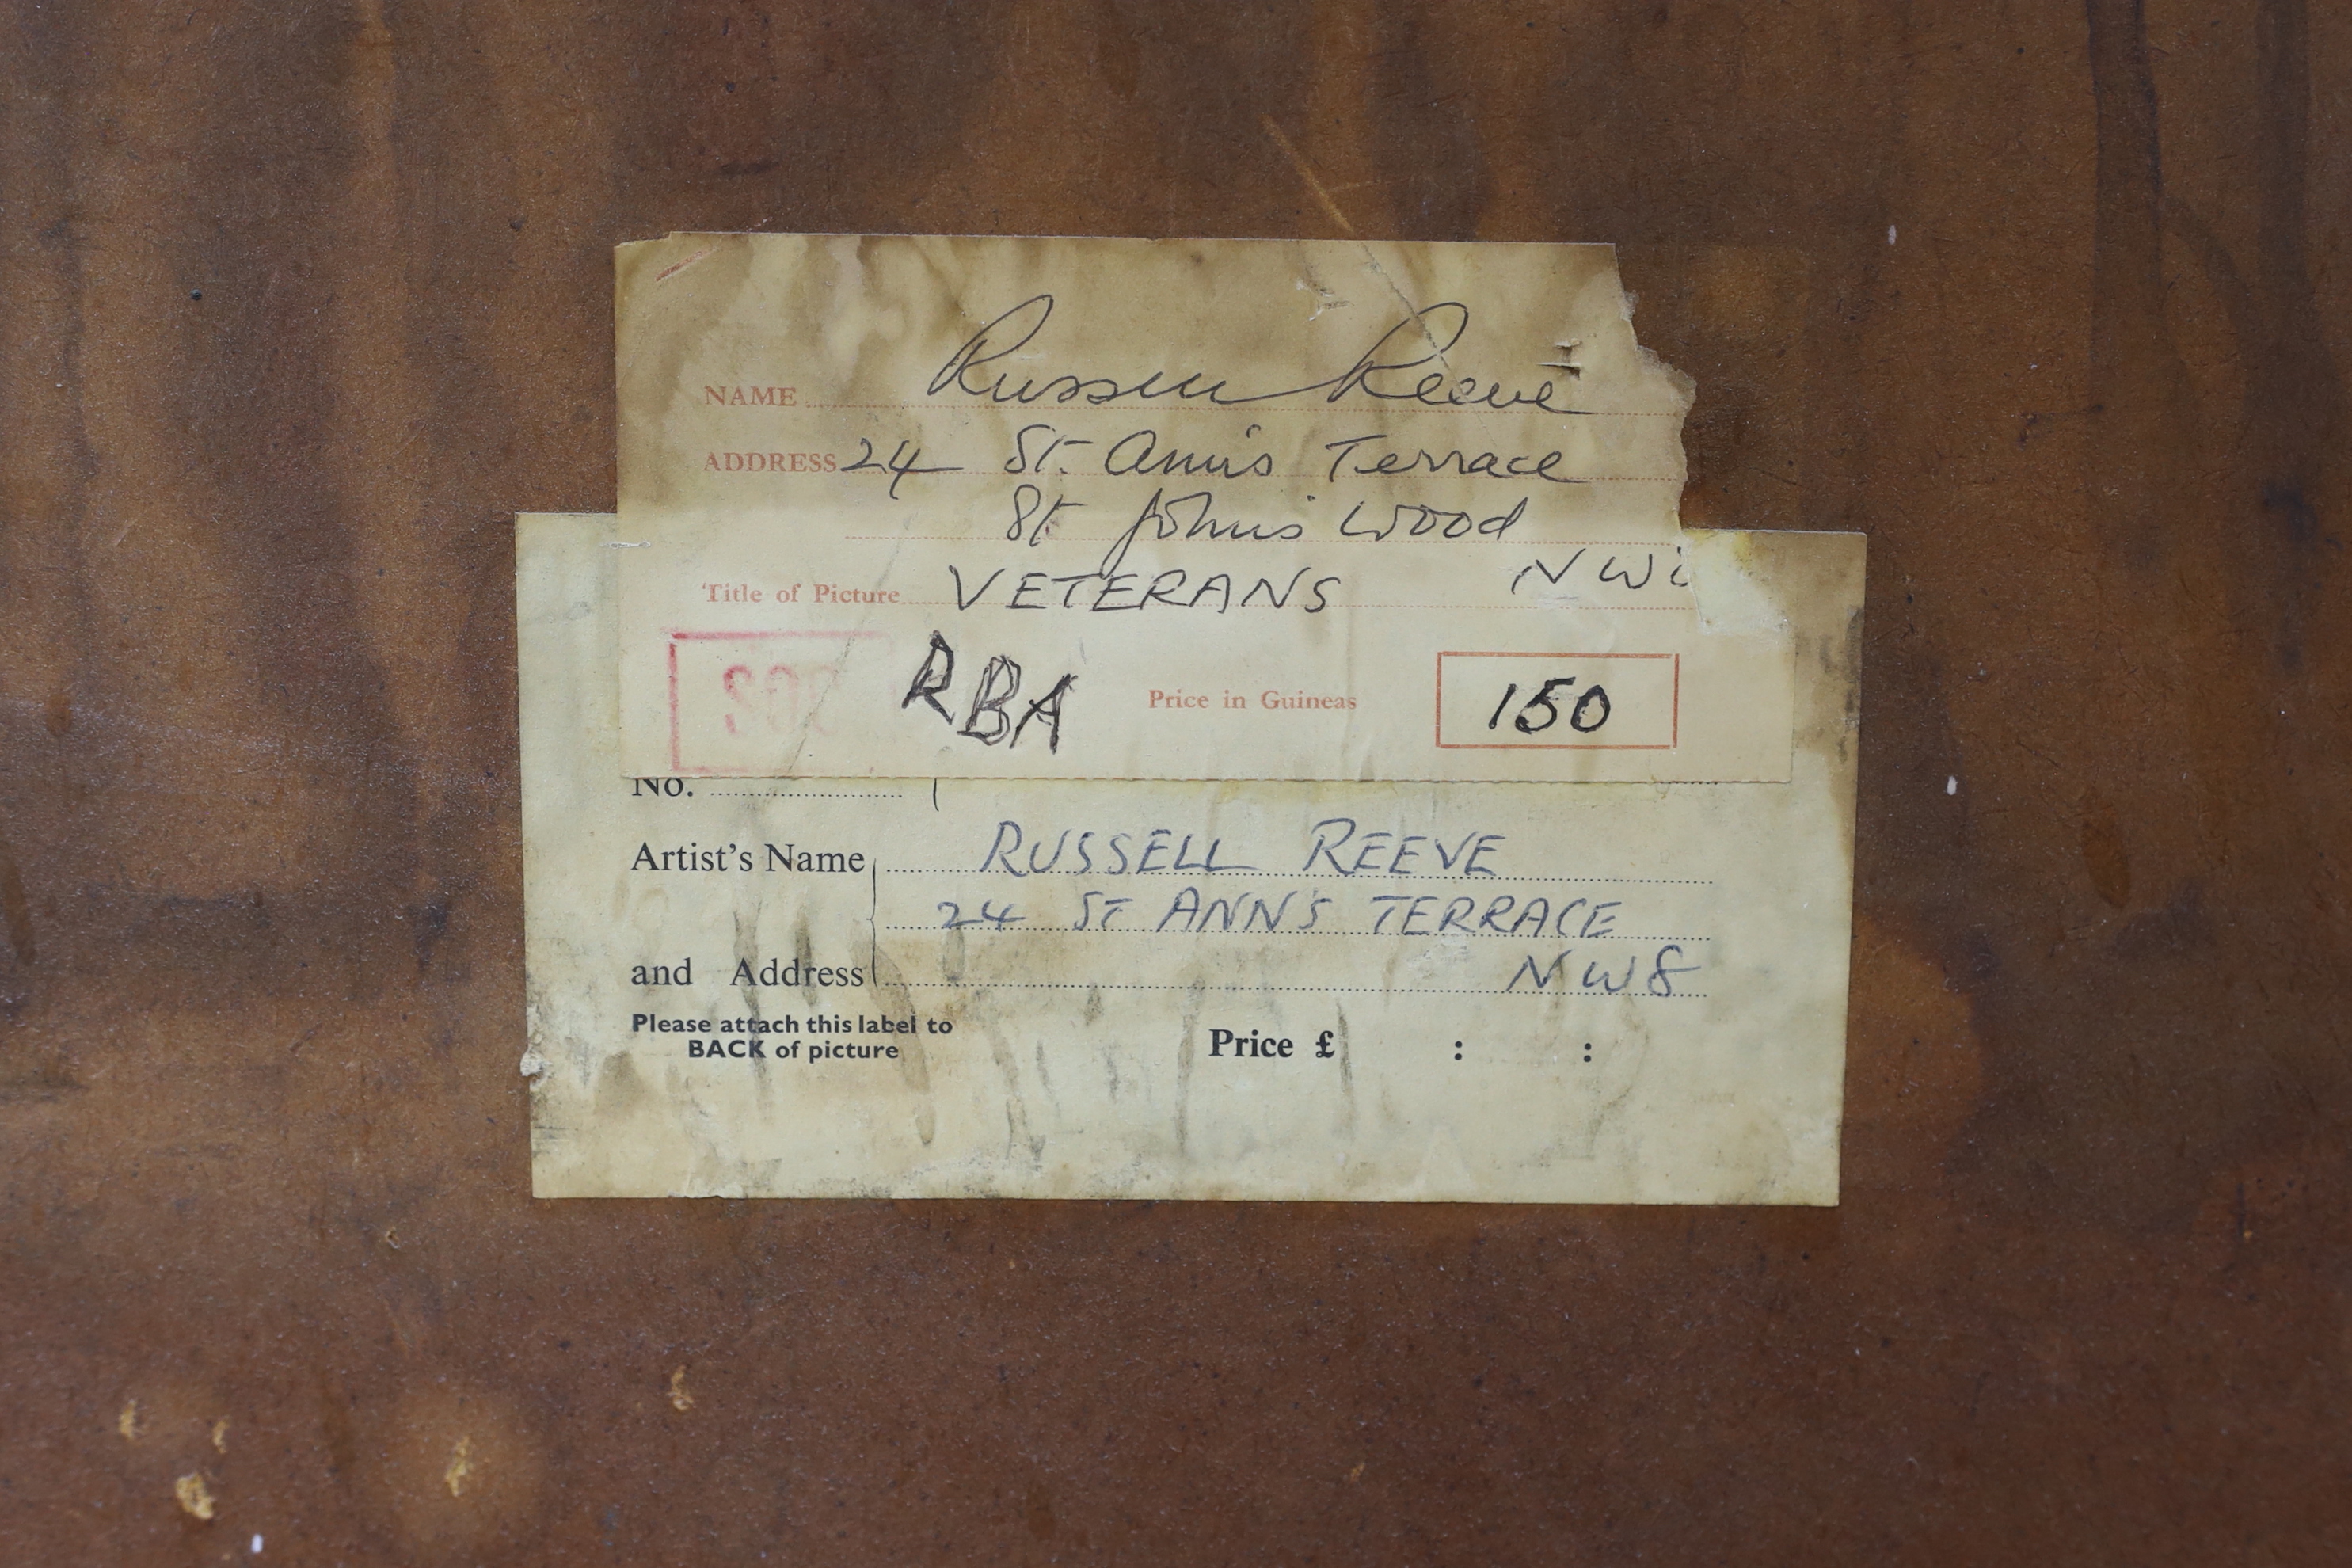 NAME Russell Reeve
ADDRESS 24 St. Ann's Terrace
St John's Wood
NW
Title of Picture VETERANS
RBA Price in Guineas 150
No.
Artist's Name RUSSELL REEVE
24 ST ANN'S TERRACE
and Address NW8
Please attach this label to
BACK of picture
Price £ : :